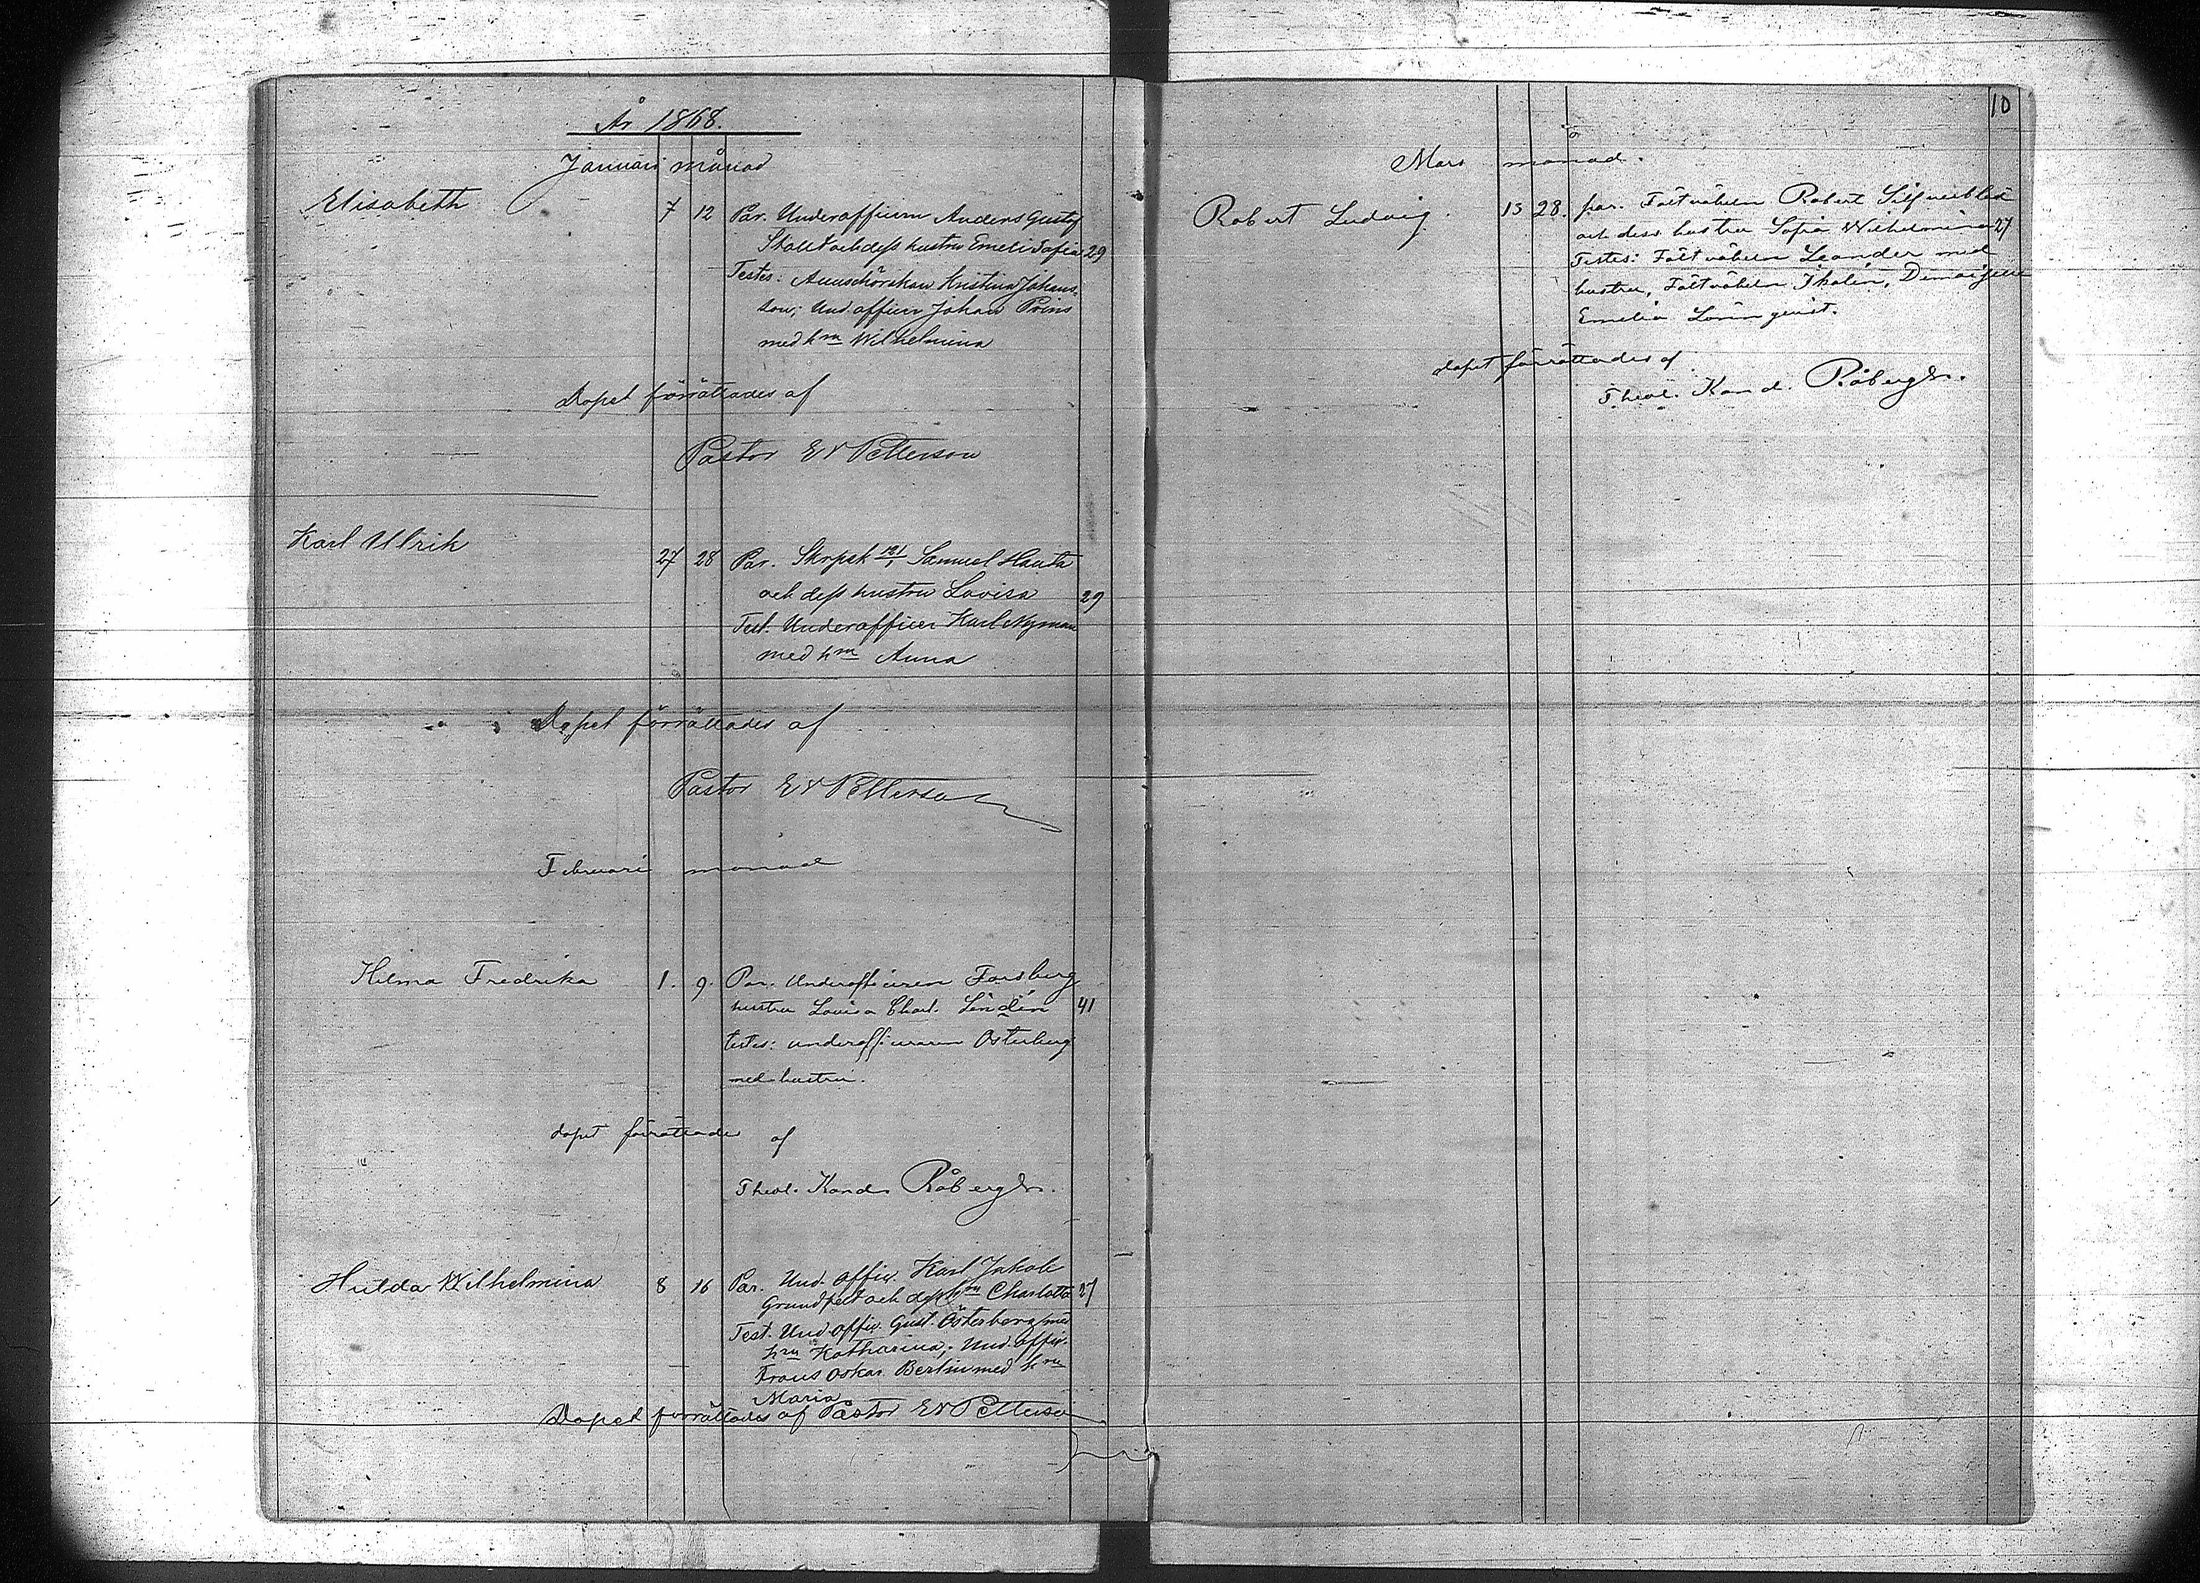 År 1868.
Januari månad
Elisabeth 7 12 Par. Underofficern Anders Gustaf
och dess hustru Emeli Sofia 29
Testes: Kristina Johans-
son; Und.officern Johan Prins
med hru Wilhelmina
Dopet förrättades af
Pastor EV Petterson
Karl Ulrik 27 28 Par. Samuel
och dess hustru Lovisa 29
Test. Underofficer Karl Nyman
med hru Anna
Dopet förrättades af
Pastor EV Petterson
Februari månad
Hilma Fredrika 1. 9. Par. Underofficeren Forsberg
hustru Lovisa Charl. Lindén 41
testes: underofficeraren Österberg
med hustru.
dopet förrättades af
Theol. Kand. Råbergh.
Hulda Wilhelmina 8 16 Par. Und. offic. Karl Jakob
och dess hru Charlotta 27
Test. Und.offic. Gust. Österberg med
hru Katharina; Und. offic.
Frans Oskar Berlin med hru
Maria
Dopet förrättades af Pastor EV Petterson
10
Mars månad.
Robert Ludvig. 13 28. par. Fältväbeln Robert Silfverblad
och dess hustru Sofia Wilhelmina 27
Testes: Fältväbeln Leander med
hustru, Fältväbeln
Emelia
dopet förrättades af
Theol. Kand. Råbergh.